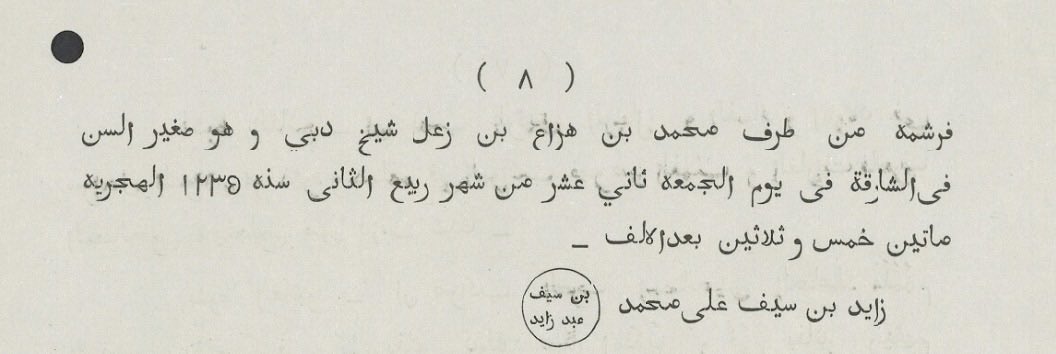 ( ٨ )
فرشمه من طرف محمد بن هزاع بن زعل شيخ دبي و هو صغير السن
فى الشارقة فى يوم الجمعه ثاني عشر من شهر ربيع الثانى سنه ١٢٣٥ الهجريه
ماتين خمس و ثلاثين بعد الالف _
زايد بن سيف على محمد
بن سيف
عبد زايد